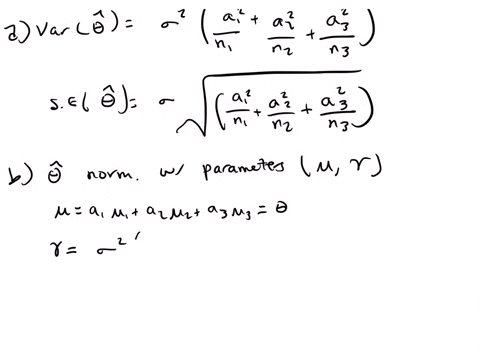 a) Var(θ̂) = σ² (a₁²/n₁ + a₂²/n₂ + a₃²/n₃)
S.E(θ̂) = σ √((a₁²/n₁ + a₂²/n₂ + a₃²/n₃))
b) θ̂ norm. w/ parametes (μ, γ)
μ = a₁ μ₁ + a₂ μ₂ + a₃ μ₃ = θ
γ = σ² (